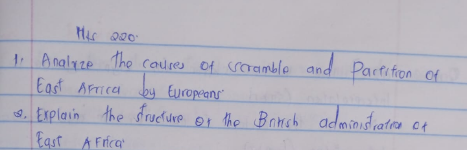 His 220.
1. Analyze the causes of scramble and Partition of
East Africa by Europeans
2. Explain the structure of the British administration of
East Africa